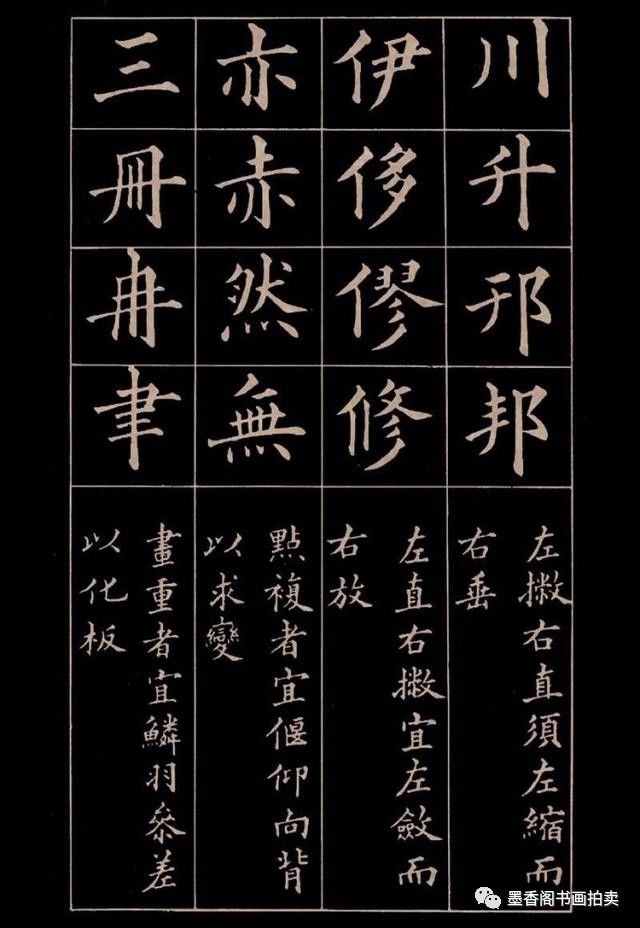 川升邢邦
左撇右直須左縮而
右垂
伊侈僇修
左直右撇宜左斂而
右放
亦赤然無
點複者宜偃仰向背
以求變
三冊冉聿
畫重者宜鱗羽參差
以化板
墨香阁书画拍卖